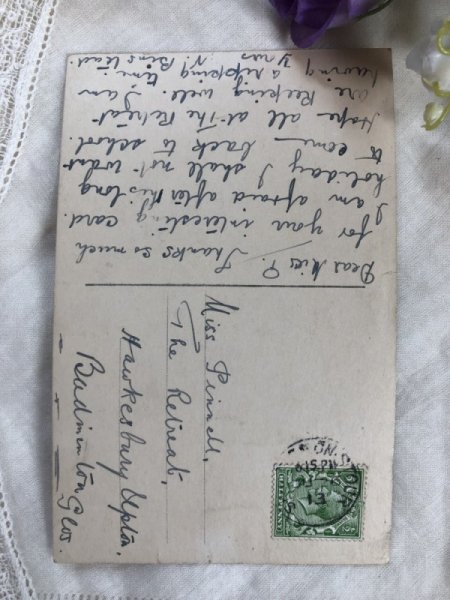 Dear Miss P. / Thanks so much
for your interesting card.
I am afraid after this long
holiday I shall not want
to come back to school.
Hope all at The Retreat
are keeping well. I am
having a ripping time
Yrs N.
Miss Pinnell,
The Retreat,
Hawkesbury Upton,
Badminton Glos.